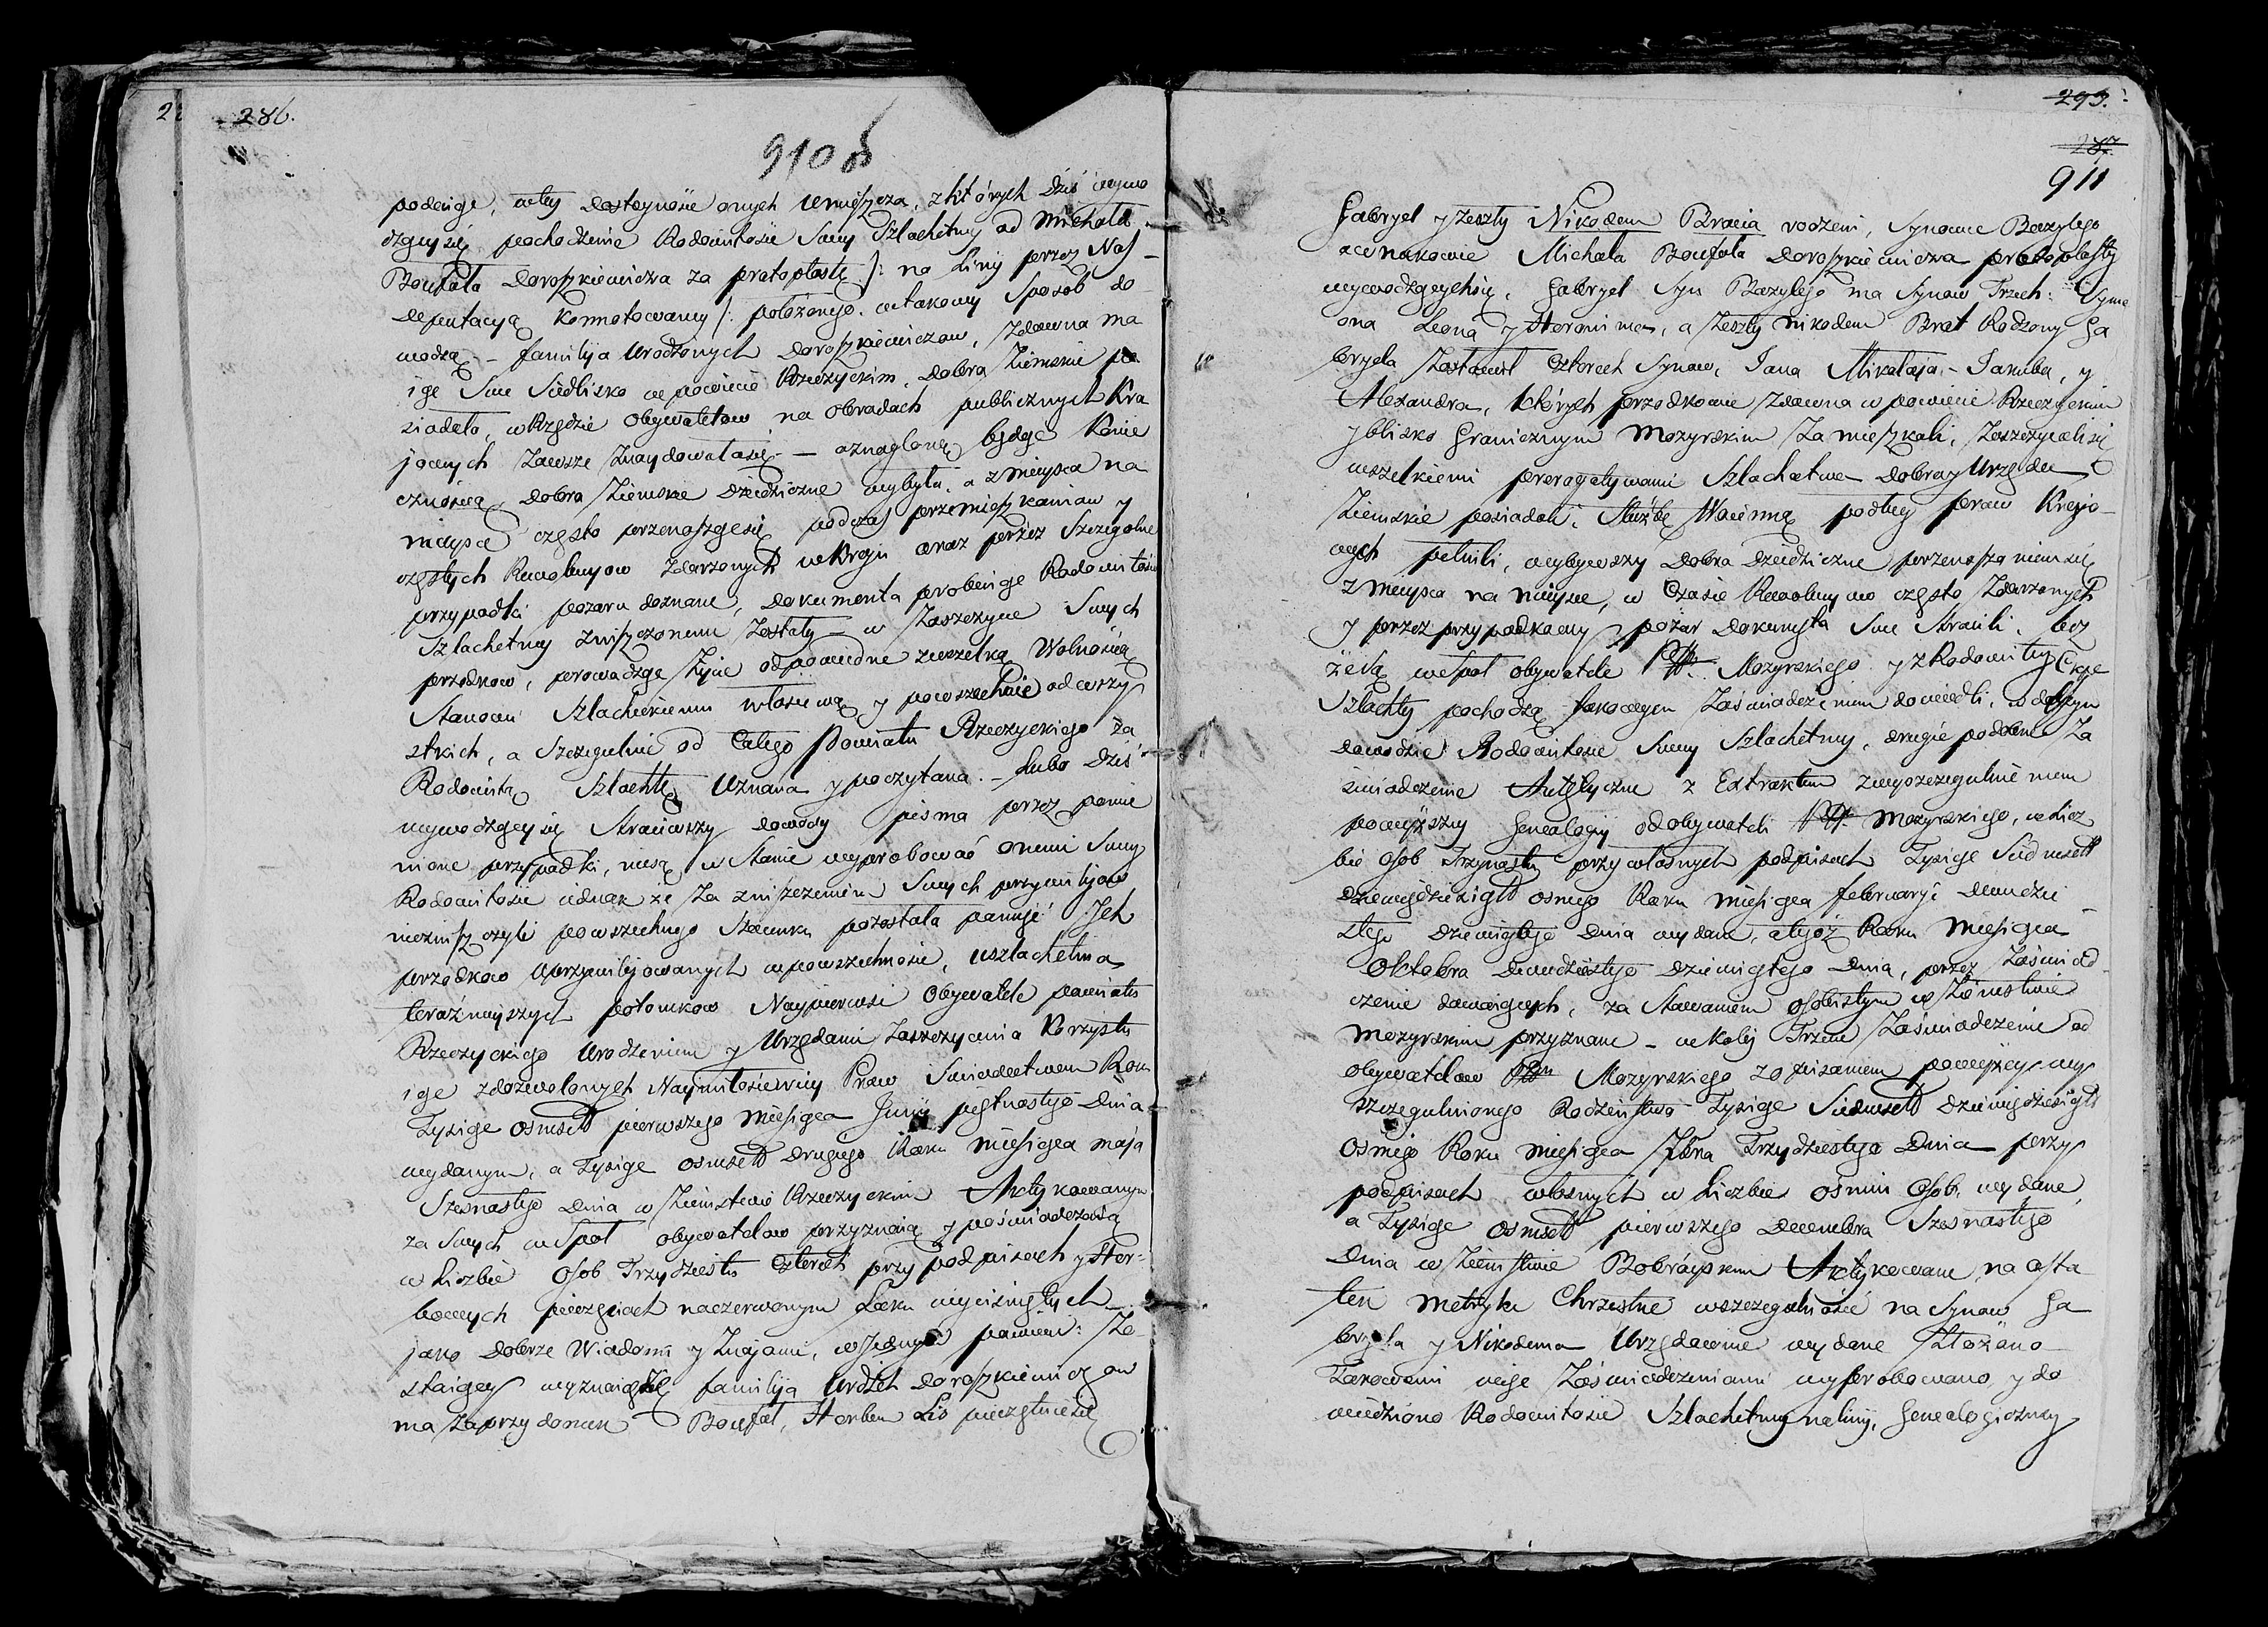 286.
910 b
podaiąc, w tey dostoyności onych umieszcza, z których dziś wywo
dzący się pochodzenie Rodowitości swey Szlachetney od Michała
Boufała Doroszkiewicza za protoplastę /: na Linij przez Nas
Deputacyą konnotowaney /: położonego, w takowy sposob do
wodzą. – familija Urodzonych Doroszkiewiczow, zdawna ma
iąc swe siedlisko w powiecie Rzeczyckim, dobra ziemskie po
siadała, w Rzędzie Obywatelow na obradach publicznych kra
jowych zawsze znaydowała się – a znaglona będąc konie
cznością, dobra ziemskie dziedziczne wybyła, a z mieysca na
mieysce często przenosząc się, podczas przemieszkaniow y
częstych Rewolucyow zdarzonych w kraju oraz przez szczegolne
przypadki pożaru doznane, dokumenta probuiące Rodowitość
Szlachetną zniszczonemi zostały – w zaszczycie swych
przodkow, prowadząc życie odpowiedne z wszelką wolnością
Stanowi Szlacheckiemu własciwą y powszechnie od wszy
stkich, a szczegulnie od całego Powiatu Rzeczyckiego za
Rodowitą Szlachtę uznana y poczytana. – Lubo dziś
wywodzący się straciwszy dowody pisma przez pomie
nione przypadki, nie są w stanie wyprobować onemi swey
Rodowitości iednakże za zniszczeniem swych przywilejow
niezniszczyli powszechnego szacunku pozostała pamięć Ich
przodkow uprzywilejowanych w powszechności, uszlachetnia
teraźnieyszych potomkow Naypierwsi Obywatele powiatu
Rzeczyckiego Urodzeniem y Urzędami zaszczycenia korzysta
iąc z dozwolonych Naymiłościwiey Praw swiadectwem Roku
Tysiąc osmset pierwszego miesiąca Junij piętnastego dnia
wydanym, a Tysiąc osmset drugiego Roku miesiąca maja
Szesnastego dnia w Ziemstwie Rzeczyckim Aktykowanym
za swych wspoł obywatelow przyznaią y poświadczaią
w liczbie osob Trzydziestu czterech przy podpisach y Her
bowych pieczęciach na czerwonym Laku wyciśniętych
jako dobrze Wiadomi y znajomi, w jednym pawiecie zo
staiący wyznaią że familija Urodzch Doroszkiewiczow
ma za przydomek Boufał, Herbem Lis pieczętuie się
293.
287.
911
Gabryel y zeszły Nikodem Bracia rodzeni, Synowie Bazylego
a wnukowie Michała Boufała Doroszkiewicza protoplasty
wywodzących się, Gabryel Syn Bazylego ma Synow Trzech: Syme
ona Leona y Heronima, a zeszły Nikodem Brat Rodzony Ga
bryela zostawił czterech Synow, Jana Mikołaja – Jakuba, y
Alexandra, których przodkowie zdawna w powiecie Rzeczyckim
y blisko Granicznym Mozyrskim zamieszkali, zaszczycali się
wszelkiemi prerogatywami Szlachectwa dobra y Urzęda
Ziemskie posiadali, Służbę Woienną podług praw krajo
wych pełnili, wybywszy dobra dziedziczne przenaszaniem się
z mieysca na mieysce, w czasie Rewolucyow często zdarzonych
y przez przypadkowy pożar dokumenta swe stracili, lecz
że są wspoł obywatele Ptu Mozyrskiego y z Rodowitey Cnje
Szlachty pochodzą takowym zaświadczeniem dowiedli, w dalszym
dowodzie Rodowitości swey Szlachetney, drugie podobne za
świadczenie Autętyczne z Extraktem z wyszczegulnieniem
powyższey Genealogij od obywateli Ptu Mozyrskiego, w licz
bie osob Trzynastu przy własnych podpisach Tysiąc siedmset
dziewiędziesiąt osmego Roku miesiąca februaryi dwudzie
stego dziewiątego dnia wydane, a tegoż Roku miesiąca
Oktobra dwudziestego dziewiątego dnia, przez zaświad
czenie dawaiących, za stawaniem osobistym w Ziemstwie
Mozyrskim przyznane – w koley Trzecie zaświadczenie od
obywatelow Ptu Mozyrskiego z opisaniem powyżey wy
szczegulnionego Rodzeństwa Tysiąc siedmset dziewiędziesiąt
osmego Roku miesiąca Xbra Trzydziestego dnia przy
podpisach własnych w liczbie osmiu osob, wydane,
a Tysiąc osmset pierwszego Decembra Szesnastego
dnia w Ziemstwie Bobruyskim Aktykowane, na osta
tek metryki Chrzestne w szczegulności na Synow Ga
bryela y Nikodema Urzędownie wydane złożono
Takowemi więc zaświadczeniami wyprobowano y do
wiedziono Rodowitości Szlachetney na linij, Genealogiczney